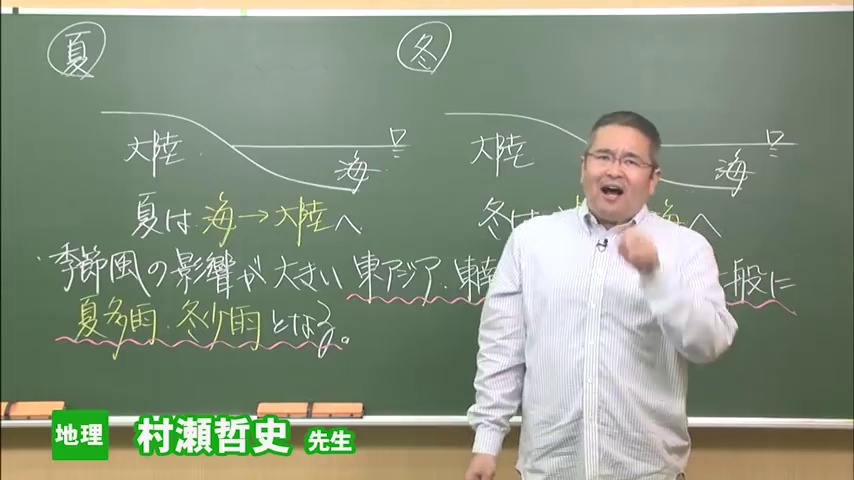 夏
冬
大陸
海
大陸
海
夏は 海→大陸へ
冬は 海へ
季節風の影響が大きい 東アジア・東南 般に
夏多雨・冬少雨となる。
地理 村瀬哲史 先生